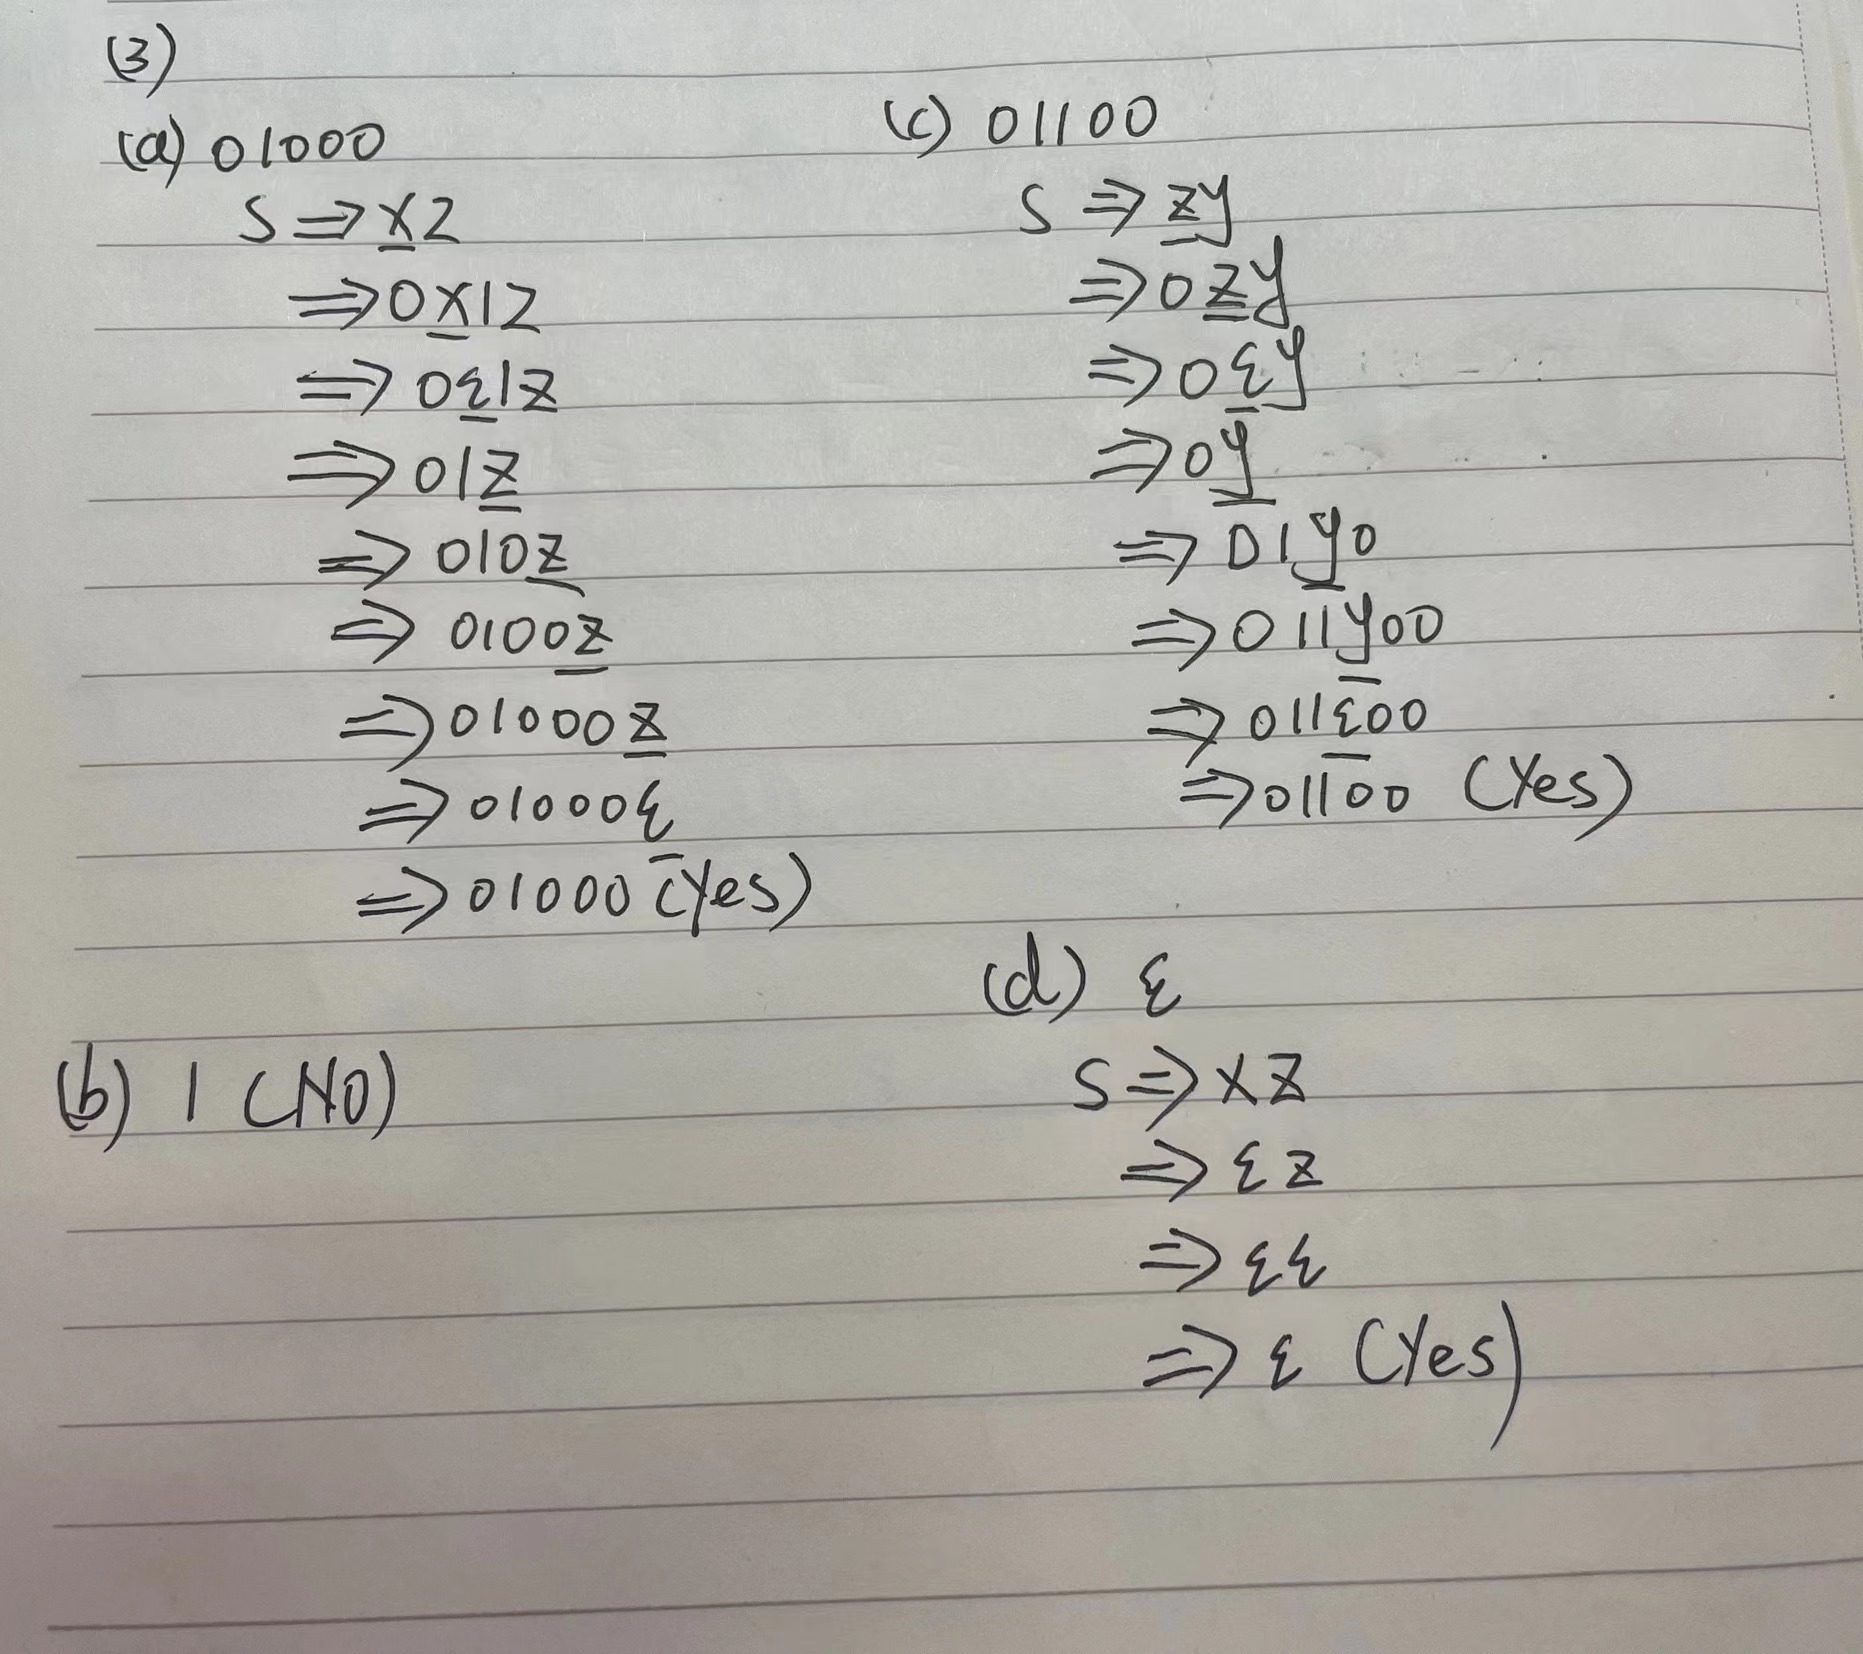 (3)
(a) 01000
S ⇒ XZ
⇒ 0X1Z
⇒ 0ε1Z
⇒ 01Z
⇒ 010Z
⇒ 0100Z
⇒ 01000Z
⇒ 01000ε
⇒ 01000 (Yes)
(b) 1 (NO)
(c) 01100
S ⇒ ZY
⇒ 0ZY
⇒ 0εY
⇒ 0Y
⇒ 01Y0
⇒ 011Y00
⇒ 011ε00
⇒ 01100 (Yes)
(d) ε
S ⇒ XZ
⇒ εZ
⇒ εε
⇒ ε (Yes)